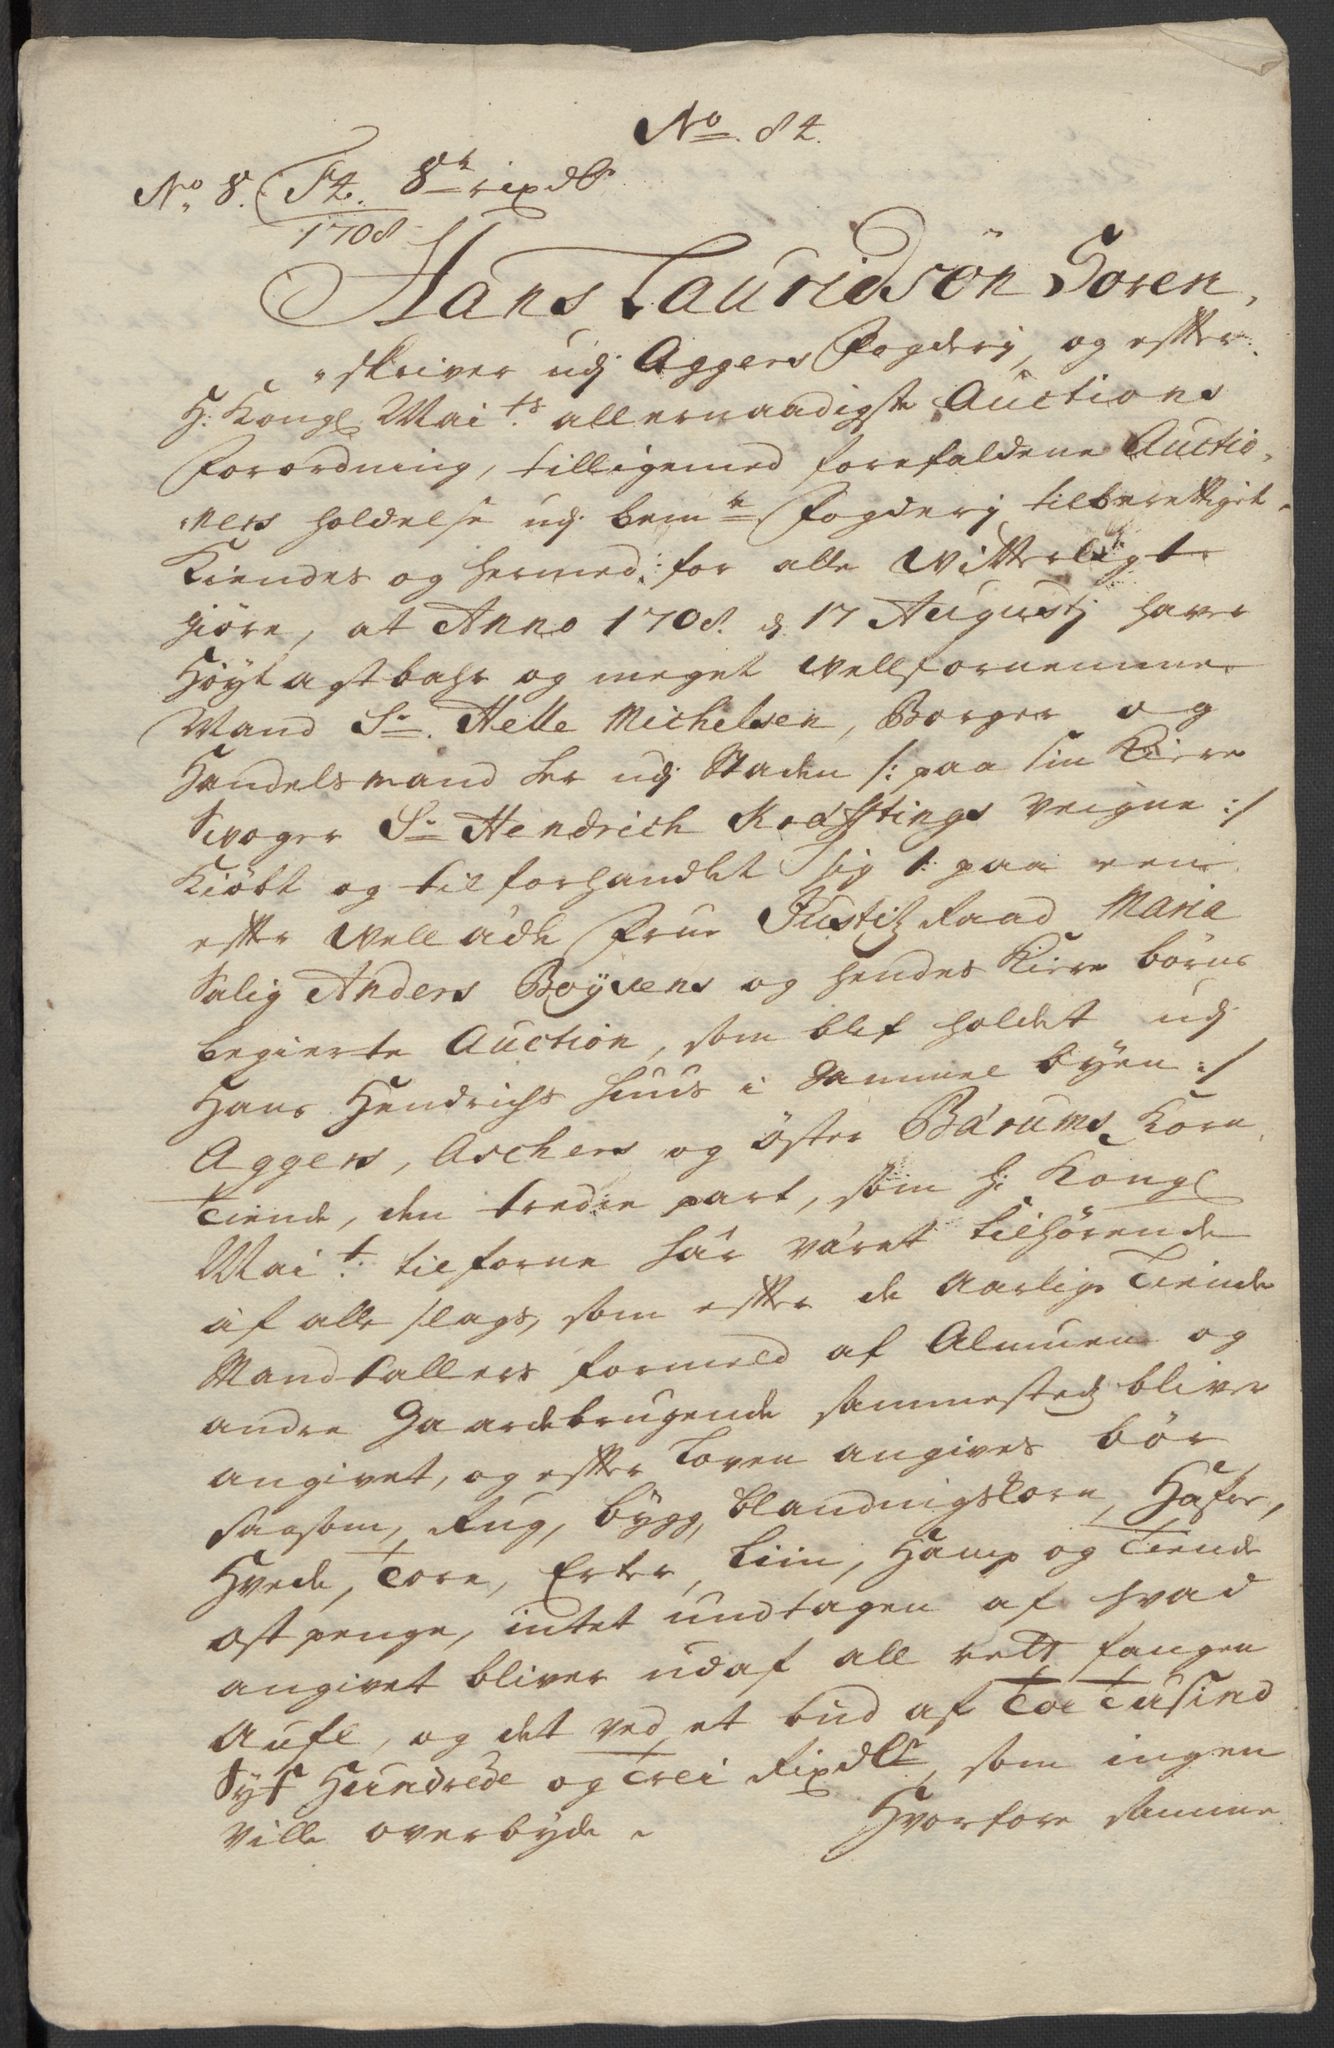 No. 84.
No. 8. F4. 8te rixdlr
1708
Hans Lauridsön Soren,
skriver udj Aggers Fogderij, og effter
H: Kongl Mai.ts allernaadigste Auctions
Forordning, tilligemed forefaldene Auctio,
ners holdelse udj bemte Fogderj tilberettiget
Kiendes og hermed: for alle Witterligt
giöre, at Anno 1708. d. 17 Augustj haver
Höyt agtbahr og meget velfornemme
Mand Sr. Helle Michelsen, Borger og
Handelsmand her udj Staden /: paa sin Kiere
Svoger Sr Hendrich Veigne :/
Kiöbt og tilforhandlet sig /: paa een
effter Well ädle Frue Justitz Raad Maria
Salig Anders Boÿsens og hendes Kiere börns
begierte Auction, som blef holdet udj
Hans Hendrichs huus i Gammel byen :/
Aggers, Aschers og öster Bärums Korn
Tiende, den tredie part, som h: Kongl
Mai.t tilforne här väret tilhörende
af alle slags, som effter de Aarlige Tiende
Mandtallers formeld af Almuen og
andre Gaardebrugende sammestedz bliver
angivet, og effter Loven angives bör
saasom, Rug, bygg, blandningskorn, Hafre,
Hvede, Tore, Erter, Liin, Hamp og Tiende
ost penge, intet undtagen af hvad
angivet bliver udaf all rett fangen
Aufl, og det ved et bud af Toe Tusind
Syf Hundrede og Trei Rixdlr, som ingen
ville overbyde. Hvorfore samme